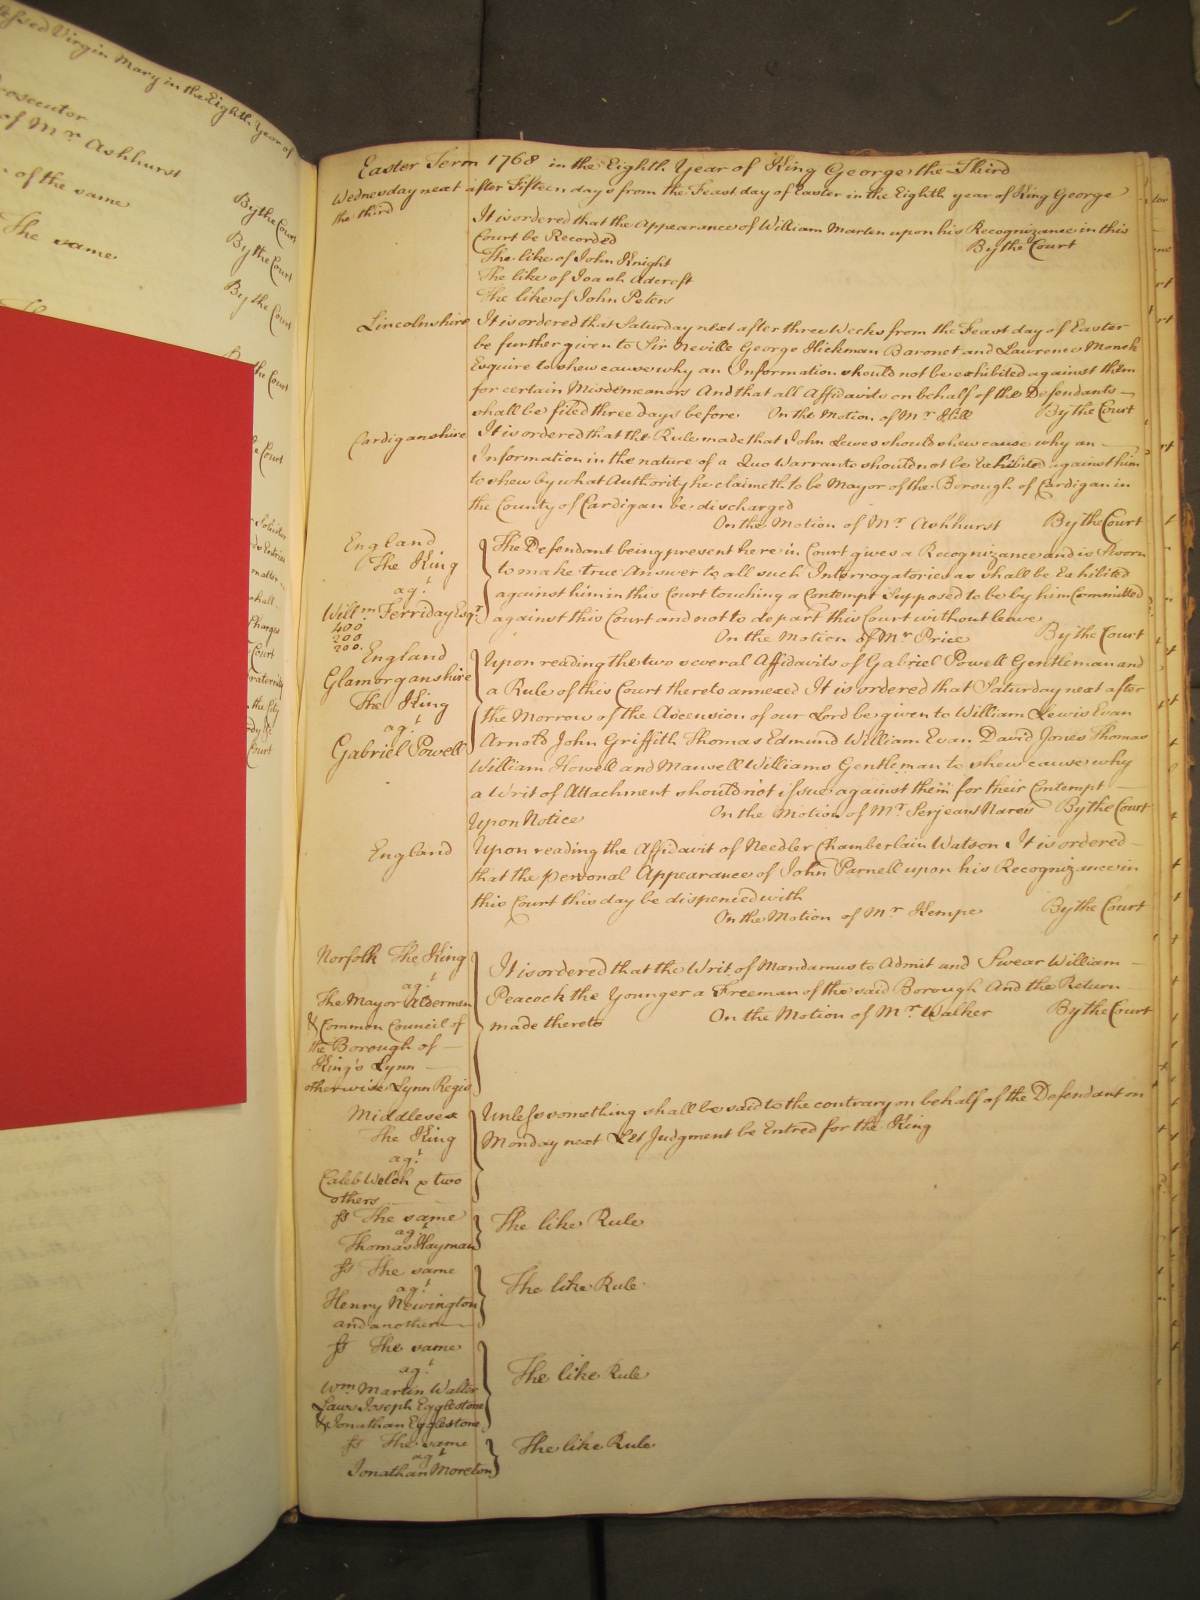 Virgin Mary in the Eighth Year of
of Mr. Ashhurst
of the same
By the Court
The same
By the Court
By the Court
the Court
Court
Easter Term 1768 in the Eighth Year of King George the Third
Wednesday next after Fifteen days from the Feast day of Easter in the Eighth year of King George
the third
It is ordered that the Appearance of William Marten upon his Recognizance in this
Court be Recorded By the Court
The like of John Knight
The like of Joash Adcroft
The like of John Peters
Lincolnshire It is ordered that Saturday next after three Weeks from the Feast day of Easter
be further given to Sir Neville George Hickman Baronet and Lawrence Monck
Esquire to shew cause why an Information should not be exhibited against them
for certain Misdemeanors And that all Affidavits on behalf of the Defendants
shall be filed three days before On the Motion of Mr. Hill By the Court
Cardiganshire It is ordered that the Rule made that John Lewes should shew cause why an
Information in the nature of a Quo Warranto should not be Exhibited against him
to shew by what Authority he claimeth to be Mayor of the Borough of Cardigan in
the County of Cardigan be discharged
On the Motion of Mr. Ashhurst By the Court
England
The King
agt.
Willm. Ferriday Esqr.
400
200
200.
The Defendant being present here in Court gives a Recognizance and is Sworn
to make true Answer to all such Interrogatories as shall be Exhibited
against him in this Court touching a Contempt Supposed to be by him Committed
against this Court and not to depart this Court without leave
On the Motion of Mr. Price By the Court
England
Glamorganshire
The King
agt.
Gabriel Powell
Upon reading the two several Affidavits of Gabriel Powell Gentleman and
a Rule of this Court thereto annexed It is ordered that Saturday next after
the Morrow of the Ascension of our Lord be given to William Lewis Evan
Arnold John Griffith Thomas Edmund William Evan David Jones Thomas
William Howell and Mansell Williams Gentleman to shew cause why
a Writ of Attachment should not issue against them for their Contempt
Upon Notice On the Motion of Mr. Serjeant Nares By the Court
England Upon reading the Affidavit of Needler Chamberlain Watson It is ordered
that the personal Appearance of John Parnell upon his Recognizance in
this Court this day be dispenced with
On the Motion of Mr. Kempe By the Court
Norfolk The King
agt.
The Mayor Aldermen
& Common Council of
the Borough of
King's Lynn
otherwise Lynn Regis
It is ordered that the Writ of Mandamus to Admit and Swear William
Peacock the Younger a Freeman of the said Borough And the Return
made thereto On the Motion of Mr. Walker By the Court
Middlesex
The King
agt.
Caleb Welch & two
others
Unless something shall be said to the contrary on behalf of the Defendant on
Monday next Let Judgment be Entred for the King
ss The same
agt.
Thomas Hayman
The like Rule
ss The same
agt.
Henry Newington
and another
The like Rule
ss The same
agt.
Wm. Martin Walter
Laws Joseph Egglestone
& Jonathan Egglestone
The like Rule
ss The same
agt.
Jonathan Moreton
The like Rule